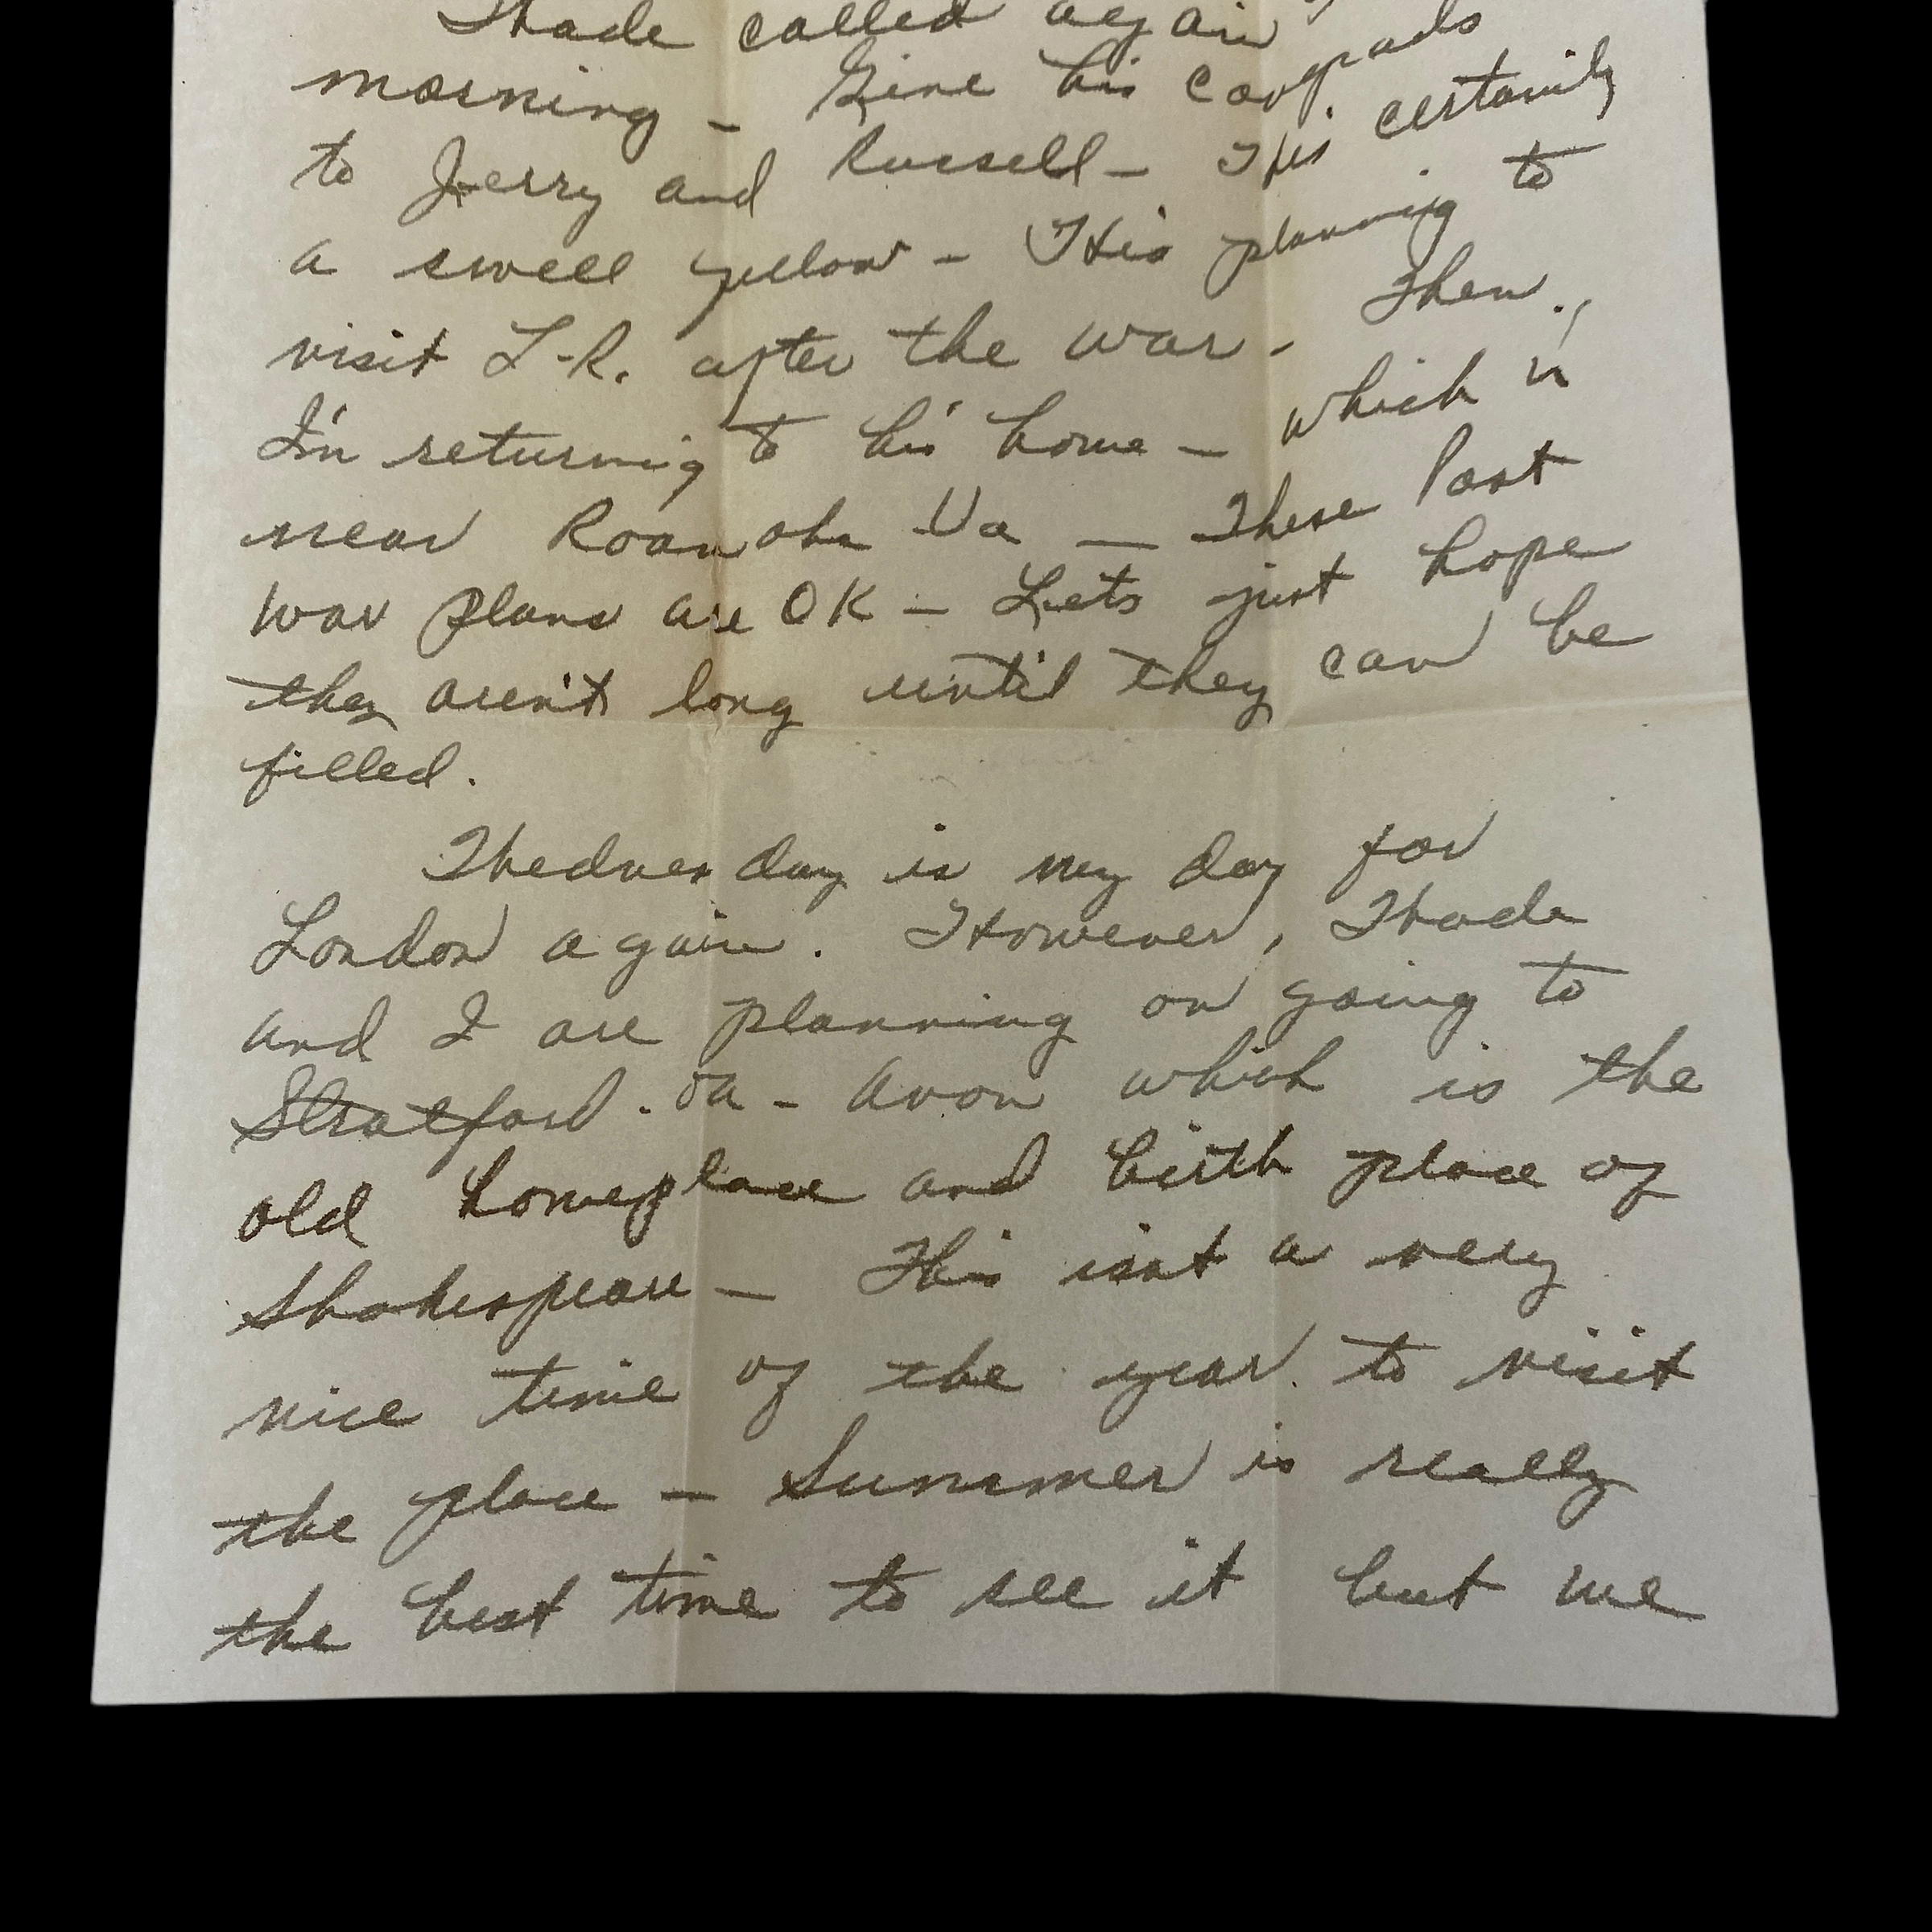 Thade called again
morning - Give his congrads
to Jerry and Russell - He's certainly
a swell fellow - He's planning to
visit L-R. after the war - Then,
I'm returning to his home - which is
near Roanoke Va - These Post
War Plans are OK - Lets just hope
they aren't long until they can be
filled.
Wednesday is my day for
London again. However, Thade
and I are planning on going to
Stratford-on-Avon which is the
old homeplace and birth place of
Shakespeare - This isnt a very
nice time of the year to visit
the place - Summer is really
the best time to see it but we